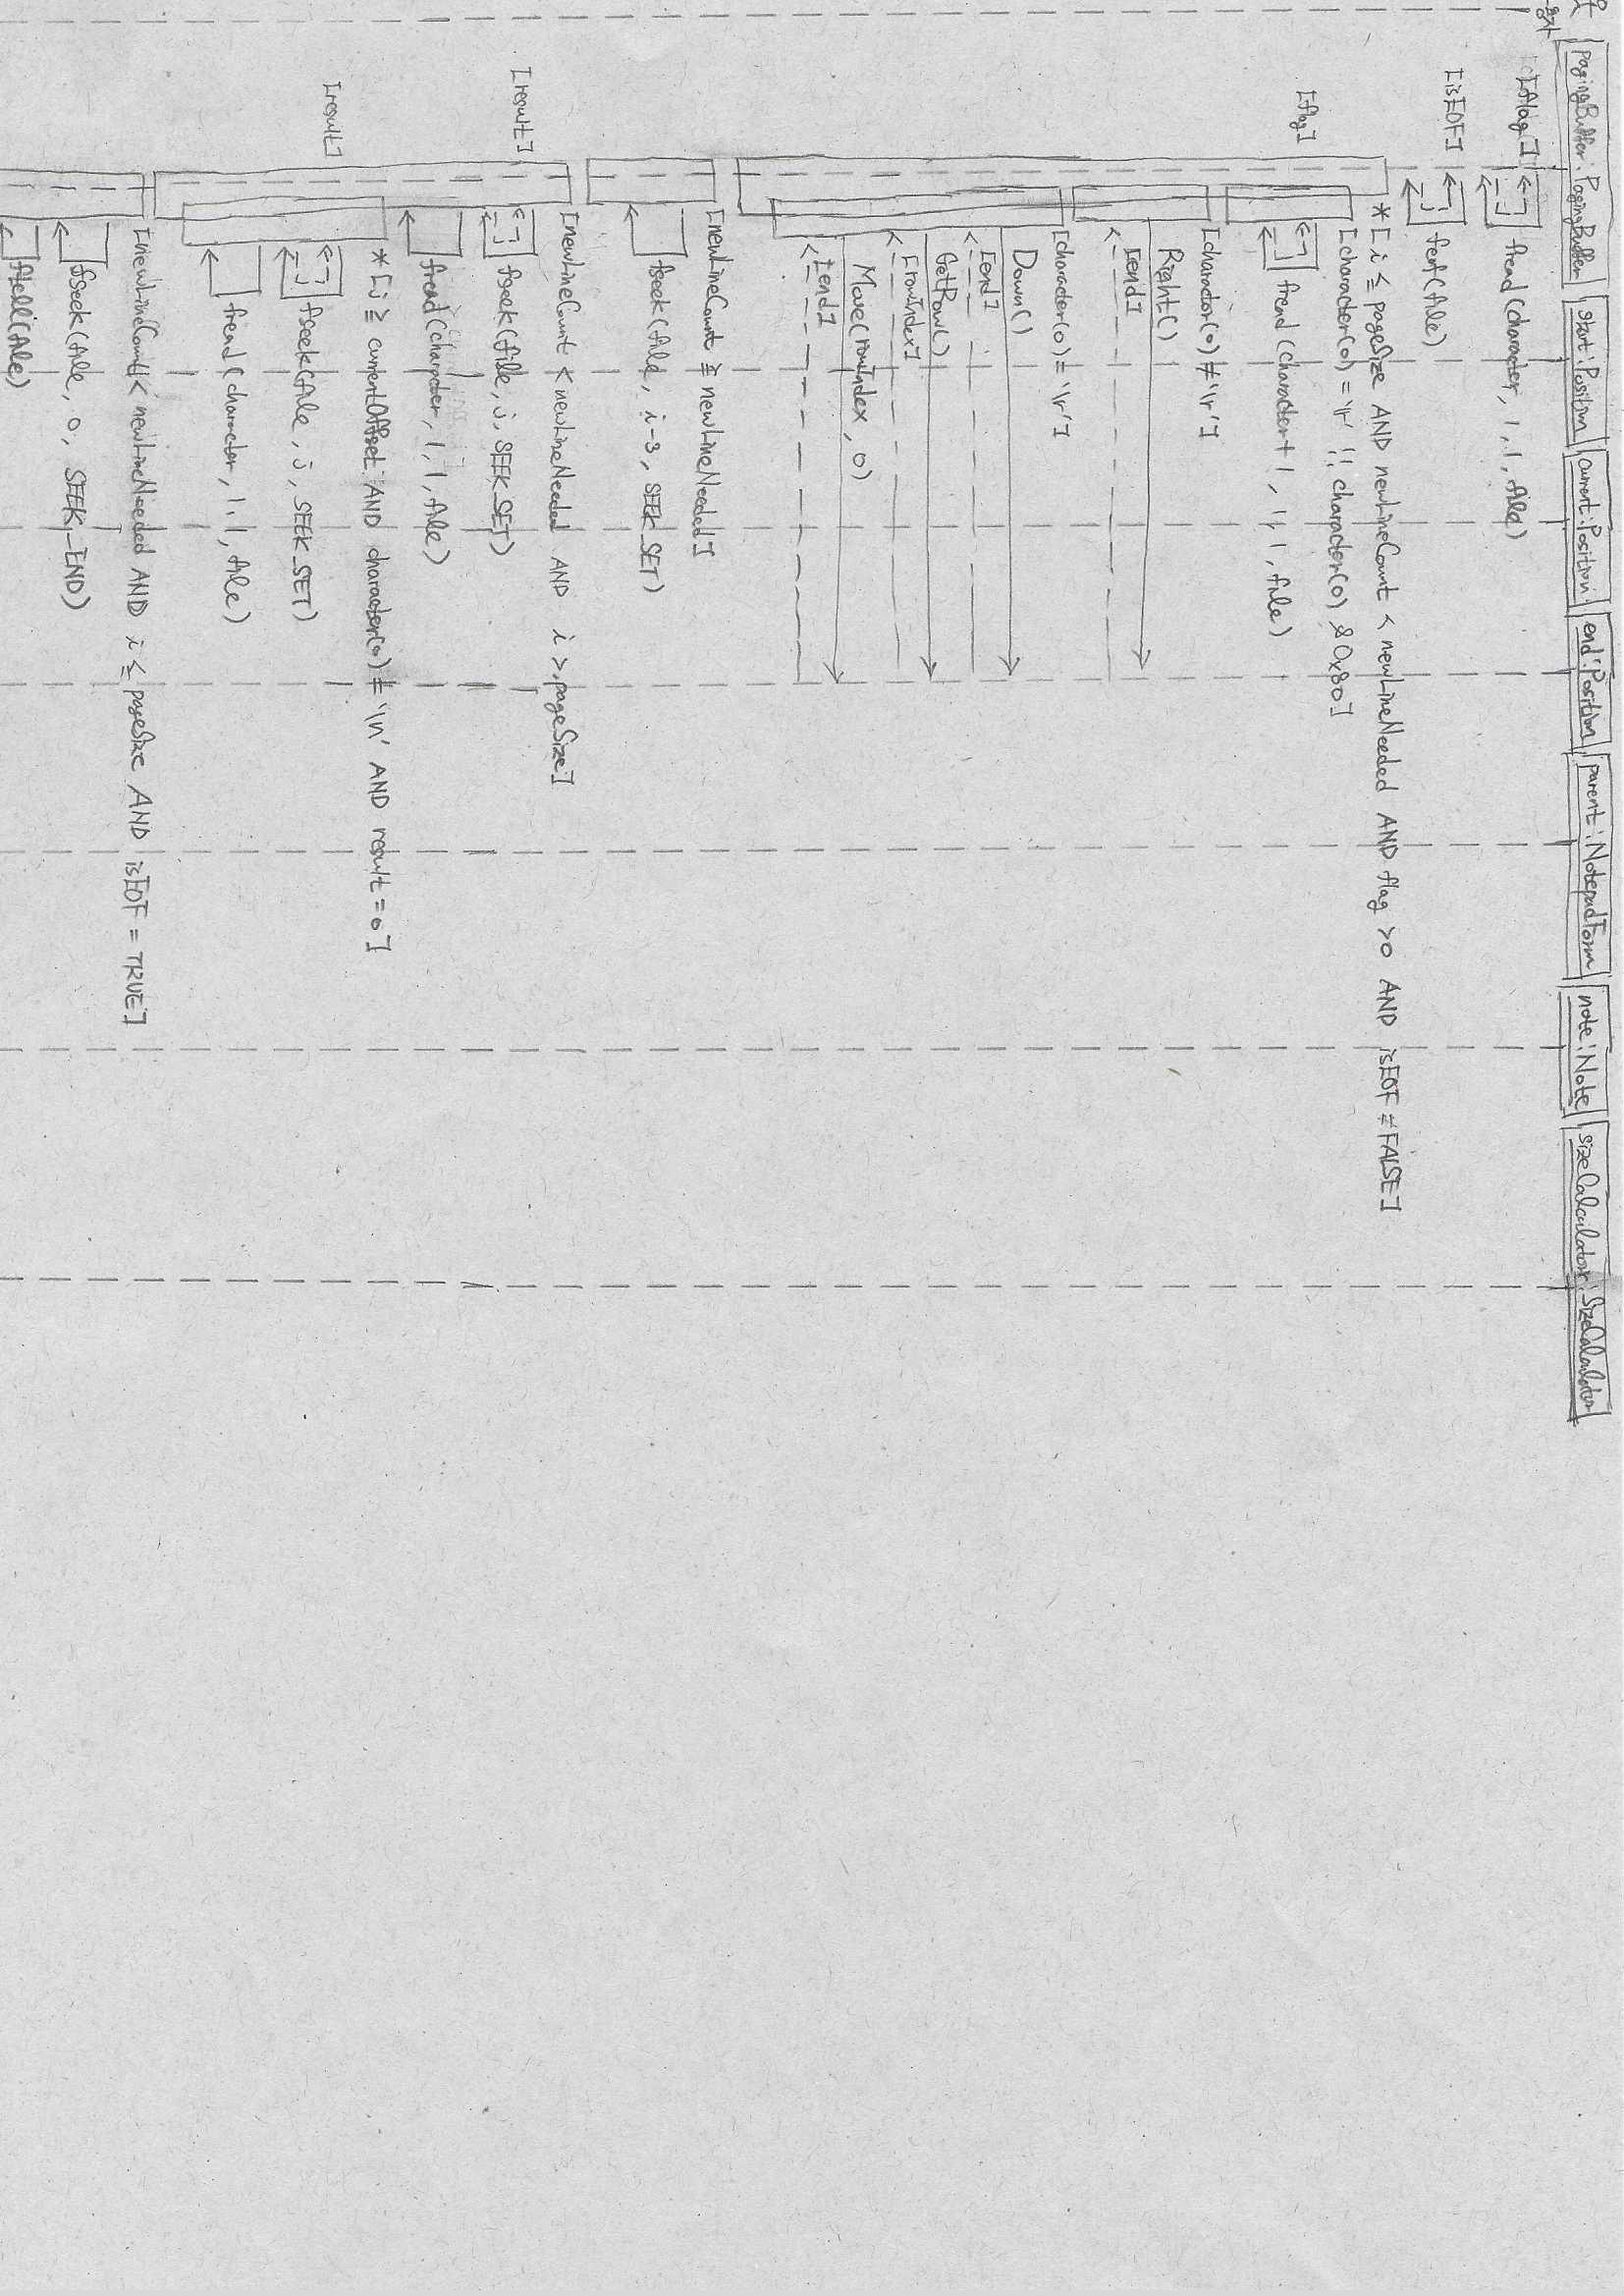 pagingBuffer : PagingBuffer start : Position current : Position end : Position parent : NotepadForm note : Note sizeCalculator : SizeCalculator
[flag] fread(character, 1, 1, file)
[isEOF] feof(file)
*[i ≦ pageSize AND newLineCount < newLineNeeded AND flag >0 AND isEOF ≠FALSE]
[character(0) = '\r' !! character(0) & 0x80]
[flag] fread(character+1, 1, 1, file)
[charactor(0) ≠ '\r']
Right()
[end]
[character(0) = '\r']
Down()
[end]
GetRow()
[rowIndex]
Move(rowIndex, 0)
[end]
[newLineCount ≧ newLineNeeded]
fseek(file, i-3, SEEK_SET)
[newLineCount < newLineNeeded AND i > pageSize]
[result] fseek(file, j, SEEK_SET)
fread(character, 1, 1, file)
*[j ≧ currentOffset AND character(0) ≠ '\n' AND result = 0]
[result] fseek(file, j, SEEK_SET)
fread(character, 1, 1, file)
[newLineCount < newLineNeeded AND i ≦ pageSize AND isEOF = TRUE]
fseek(file, 0, SEEK_END)
ftell(file)